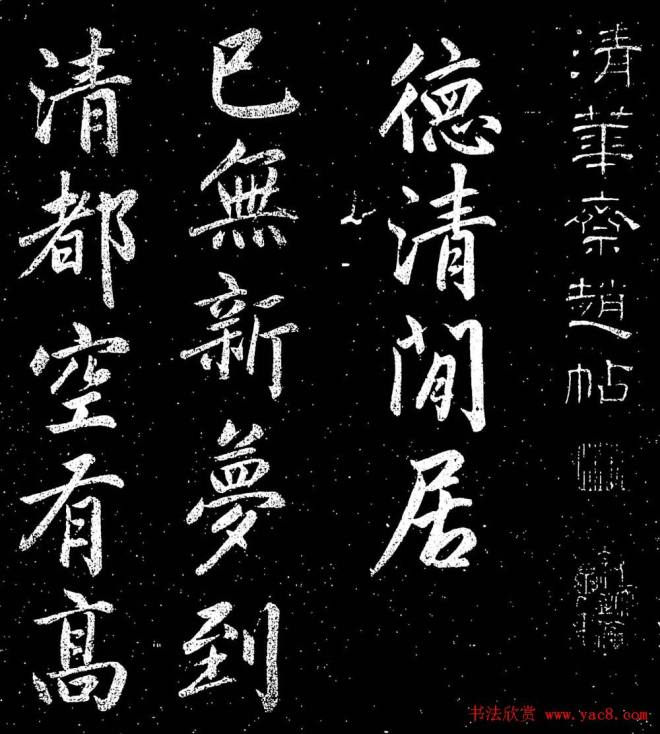 清華齋趙帖
德清閒居
已無新夢到
清都空有高
书法欣赏 www.yac8.com